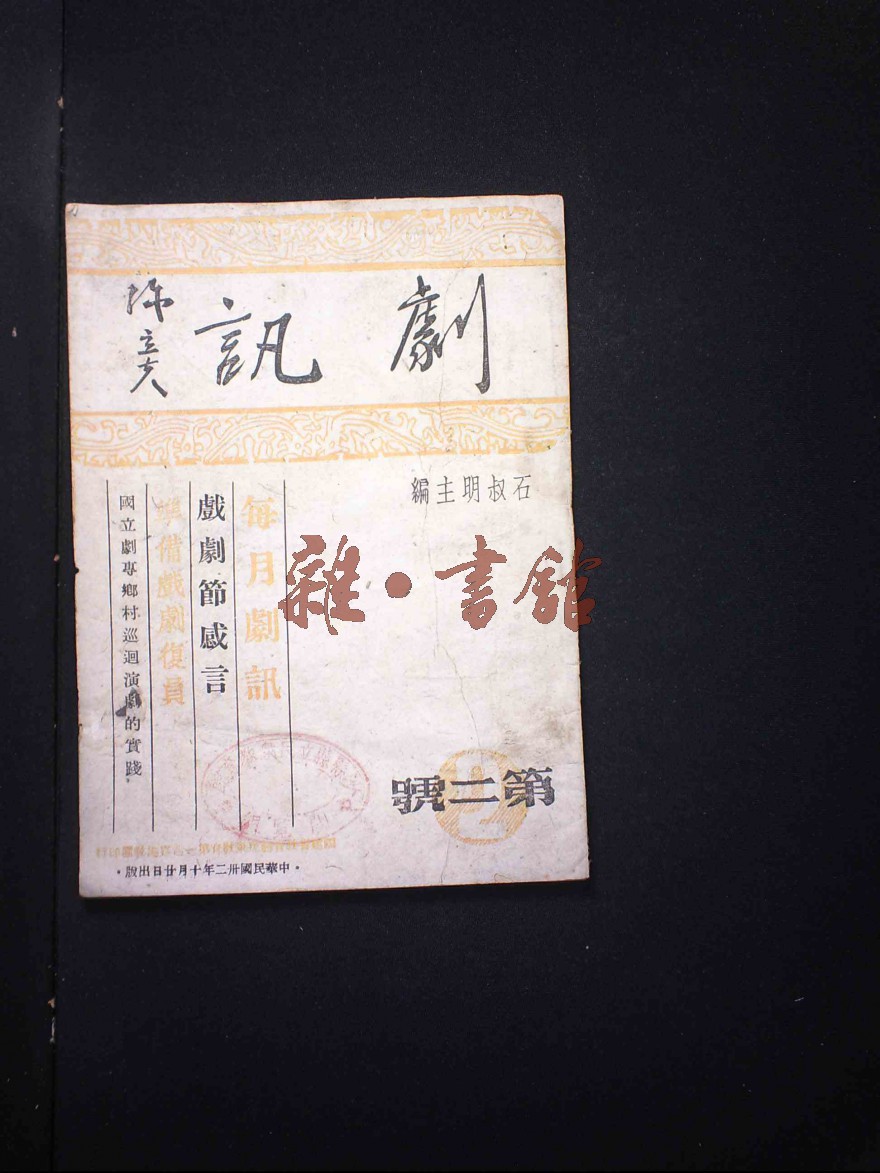 劇訊
陳立夫
石叔明主編
每月劇訊
戲劇節感言
準備戲劇復員
國立劇專鄉村巡迴演劇的實踐
第二號
·中華民國卅二年十月廿日出版·
雜·書館